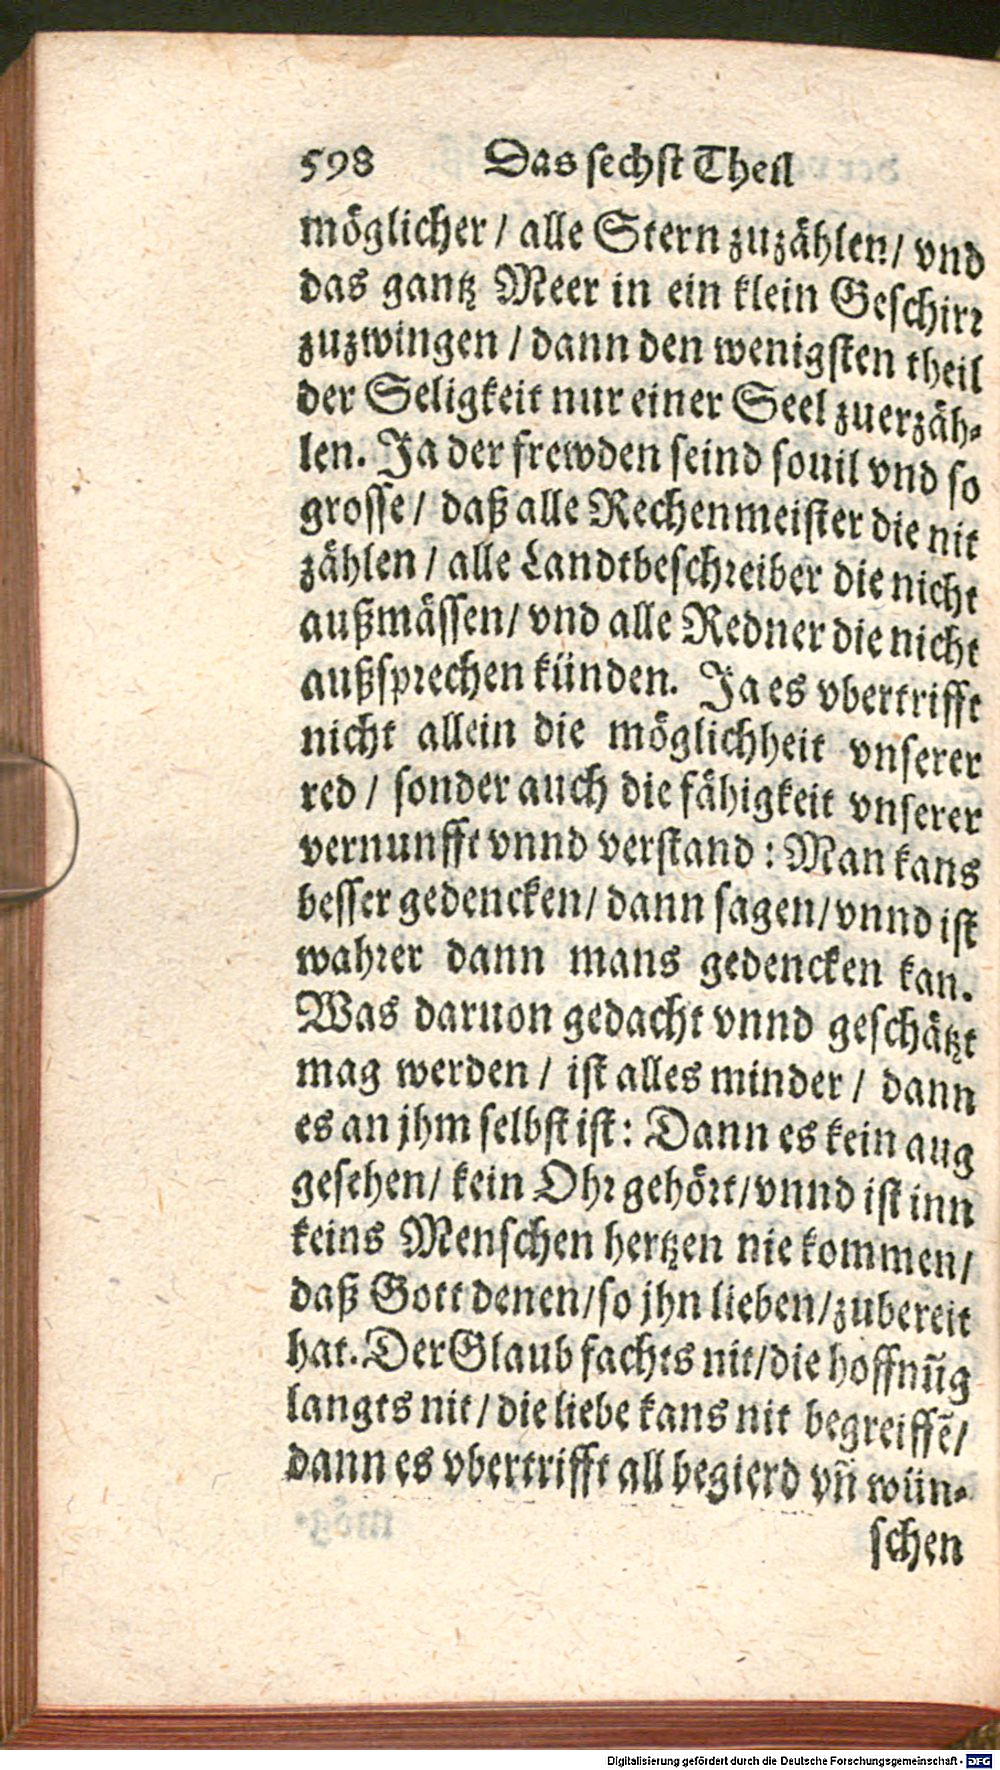 598 Das sechst Theil
möglicher / alle Stern zuzählen / vnd
das gantz Meer in ein klein Geschirr
zuzwingen / dann den wenigsten theil
der Seligkeit nur einer Seel zuerzäh-
len. Ja der frewden seind souil vnd so
grosse / daß alle Rechenmeister die nit
zählen / alle Landtbeschreiber die nicht
außmässen / vnd alle Redner die nicht
außsprechen künden. Ja es vbertrifft
nicht allein die möglichheit vnserer
red / sonder auch die fähigkeit vnserer
vernunfft vnnd verstand : Man kans
besser gedencken / dann sagen / vnnd ist
wahrer dann mans gedencken kan.
Was daruon gedacht vnnd geschätzt
mag werden / ist alles minder / dann
es an jhm selbst ist : Dann es kein aug
gesehen / kein Ohr gehört / vnnd ist inn
keins Menschen hertzen nie kommen /
daß Gott denen / so jhn lieben / zubereit
hat. Der Glaub fachts nit / die hoffnũg
langts nit / die liebe kans nit begreiffẽ /
dann es vbertrifft all begierd vñ wün-
schen
Digitalisierung gefördert durch die Deutsche Forschungsgemeinschaft - DFG